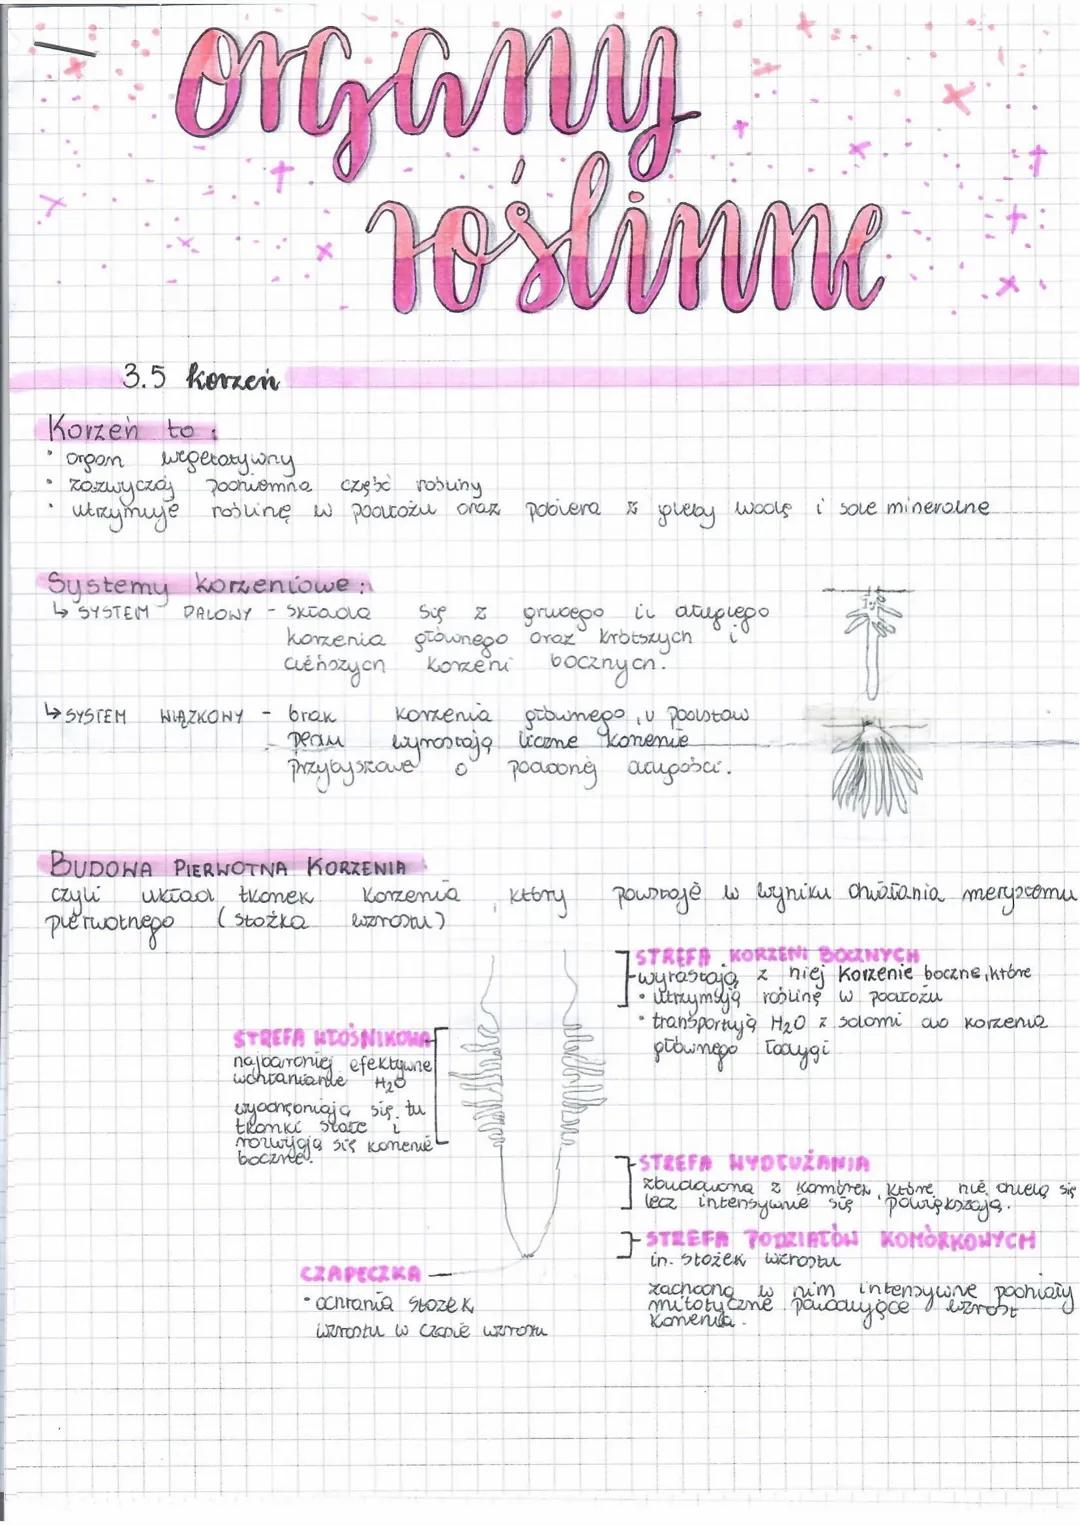 organy
roślinne
3.5 korzeń
Korzeń to:
• organ wegetatywny
• zazwyczaj podziemna część rośliny
• utrzymuje roślinę w podłożu oraz pobiera z gleby wodę i sole mineralne
Systemy korzeniowe:
↳ SYSTEM PALOWY - składa się z grubego i długiego
korzenia głównego oraz krótszych i
cieńszych korzeni bocznych.
↳ SYSTEM WIĄZKOWY - brak korzenia głównego, u podstaw
pędu wyrastają liczne korzenie
przybyszowe o podobnej długości.
BUDOWA PIERWOTNA KORZENIA
czyli układ tkanek korzenia, który powstaje w wyniku działania merystemu
pierwotnego (stożka wzrostu)
STREFA KORZENI BOCZNYCH
wyrastają z niej korzenie boczne, które
• utrzymują roślinę w podłożu
• transportują H₂O z solami do korzenia
głównego łodygi
STREFA WŁOŚNIKOWA
najbardziej efektywne
wchłanianie H₂O
wyodrębniają się tu
tkanki stałe i
rozwijają się korzenie
boczne.
STREFA WYDŁUŻANIA
zbudowana z komórek, które nie dzielą się
lecz intensywnie się powiększają.
STREFA PODZIAŁÓW KOMÓRKOWYCH
in. stożek wzrostu
zachodzą w nim intensywne podziały
mitotyczne powodujące wzrost
korzenia.
CZAPECZKA
• ochrania stożek
wzrostu w czasie wzrostu